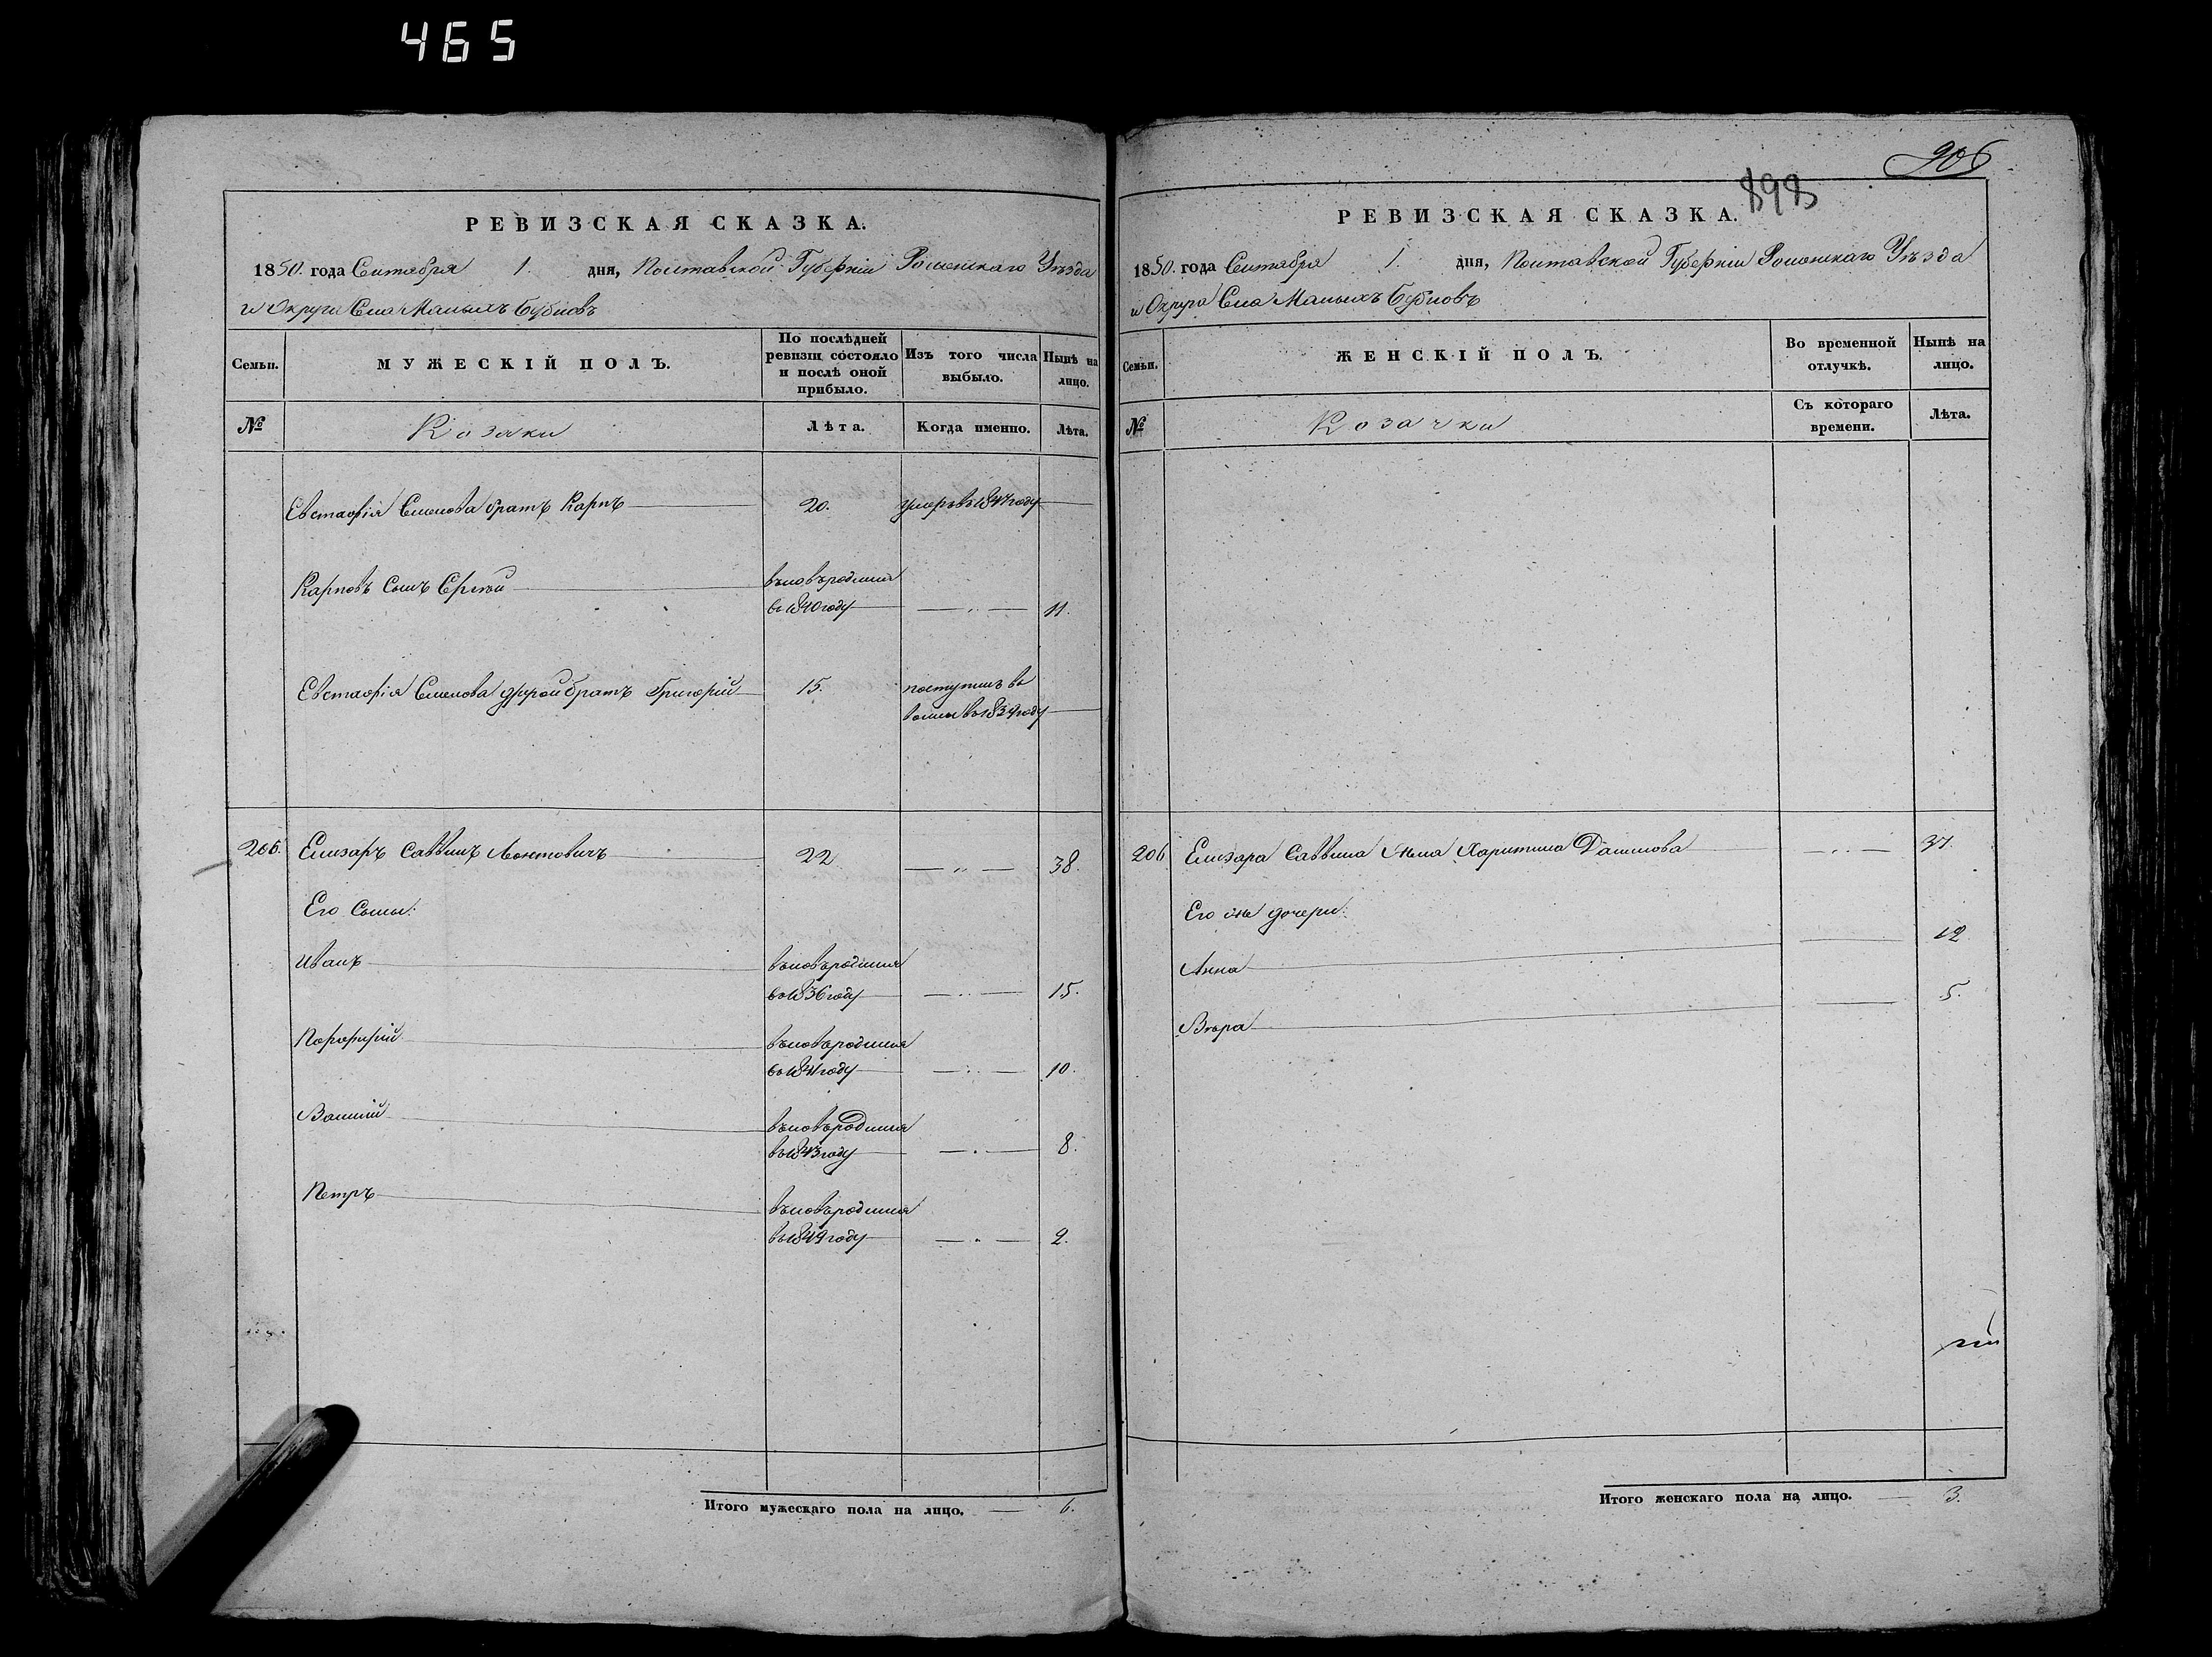 465
906
898
РЕВИЗСКАЯ СКАЗКА.
1850. года Сентября 1. дня, Полтавской Губерніи Роменскаго Уѣзда
и Округа Села Малыхъ Бубновъ
Семьи. МУЖЕСКІЙ ПОЛЪ. По послѣдней ревизіи состояло и послѣ оной прибыло. Изъ того числа выбыло. Нынѣ на лицо.
№ Козаки Лѣта. Когда именно. Лѣта.
Евстафія Семенова братъ Карпъ 20. умеръ въ 1847 году
Карповъ сынъ Сергѣй вновь родился
въ 1840 году 11.
Евстафія Семенова другой братъ Григорій 15. поступилъ въ
въ 1839 году
206. Елизаръ Саввинъ Леонтовичъ 22 38.
Его сыны:
Иванъ вновь родился
въ 1836 году 15.
Порфирій вновь родился
въ 1841 году 10.
Василій вновь родился
въ 1843 году 8.
Петръ вновь родился
въ 1849 году 2.
Итого мужескаго пола на лицо. 6.
РЕВИЗСКАЯ СКАЗКА.
1850. года Сентября 1. дня, Полтавской Губерніи Роменскаго Уѣзда
и Округа Села Малыхъ Бубновъ
Семьи. ЖЕНСКІЙ ПОЛЪ. Во временной отлучкѣ. Нынѣ на лицо.
№ Козачки Съ котораго времени. Лѣта.
206 Елизара Саввина жена Харитина Данилова 37.
Его же дочери:
Анна 12
Вѣра 5.
Итого женскаго пола на лицо. 3.